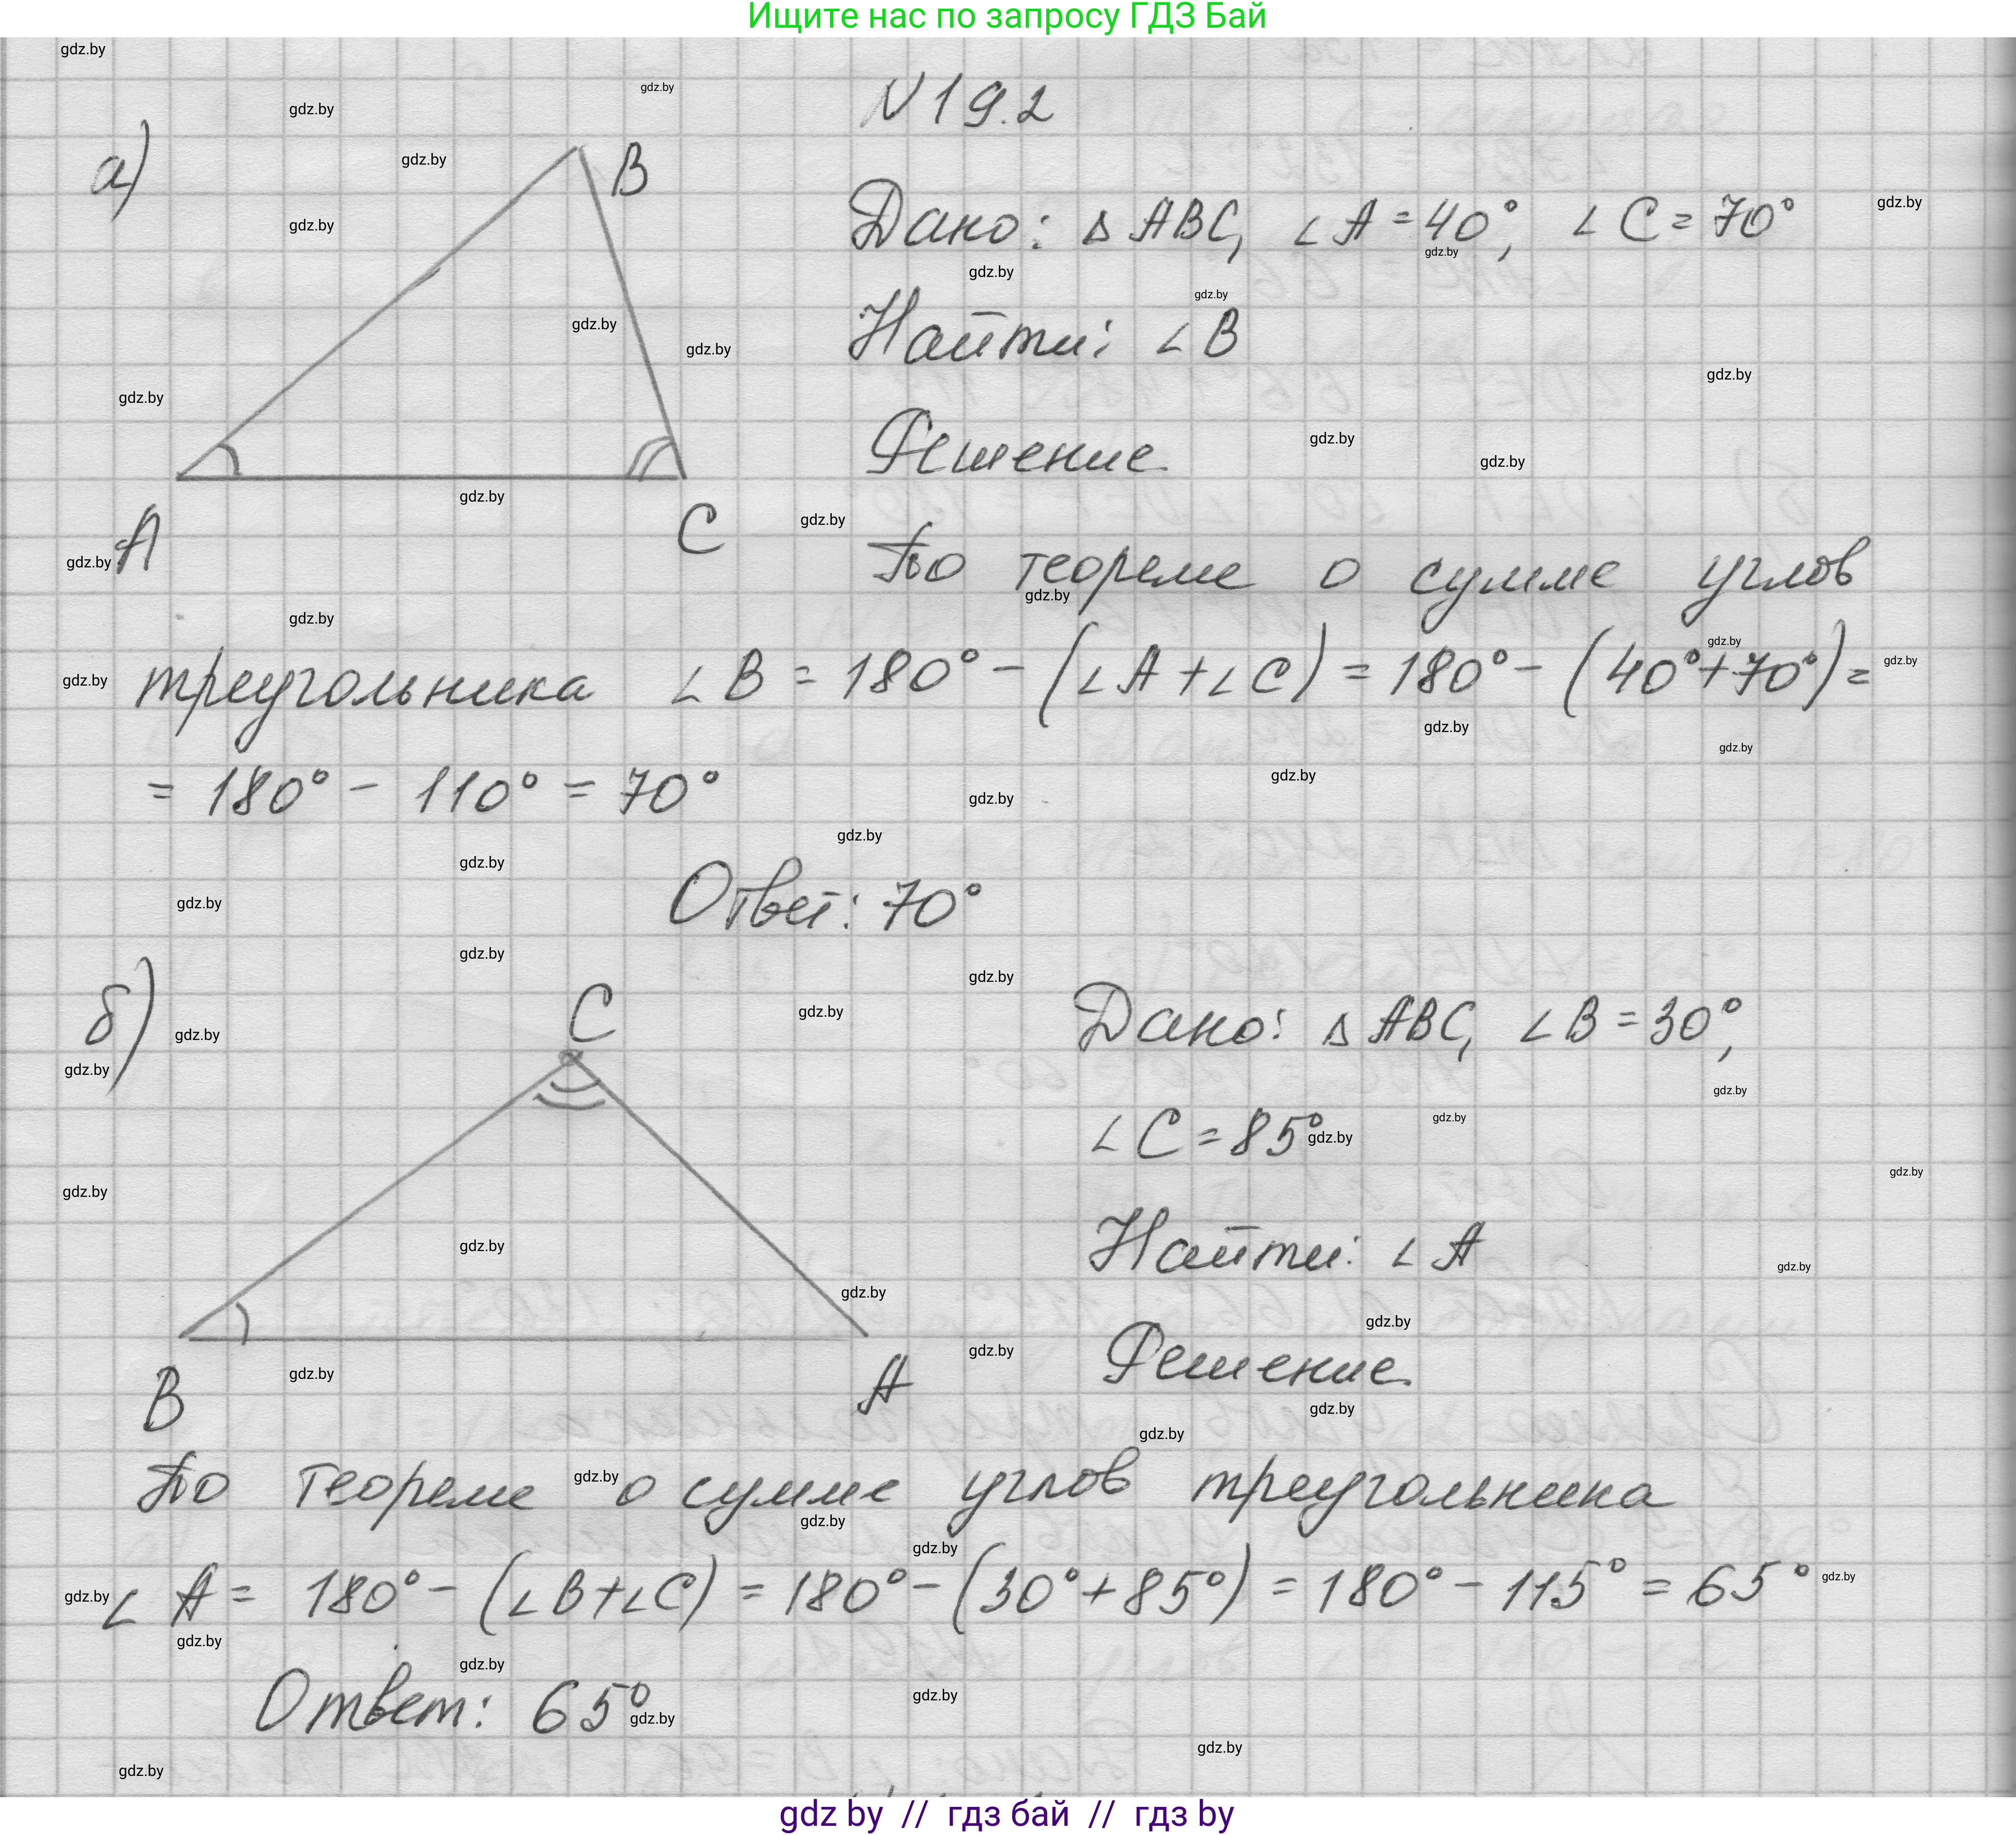 Ищите нас по запросу ГДЗ Бай
N 19.2
а)
B
A
C
Дано: △ ABC, ∠ A = 40°, ∠ C = 70°
Найти: ∠ B
Решение
По теореме о сумме углов
треугольника ∠ B = 180° - (∠ A + ∠ C) = 180° - (40° + 70°) =
= 180° - 110° = 70°
Ответ: 70°
б)
C
B
A
Дано: △ ABC, ∠ B = 30°,
∠ C = 85°
Найти: ∠ A
Решение
По теореме о сумме углов треугольника
∠ A = 180° - (∠ B + ∠ C) = 180° - (30° + 85°) = 180° - 115° = 65°
Ответ: 65°
gdz.by
gdz by // гдз бай // гдз by